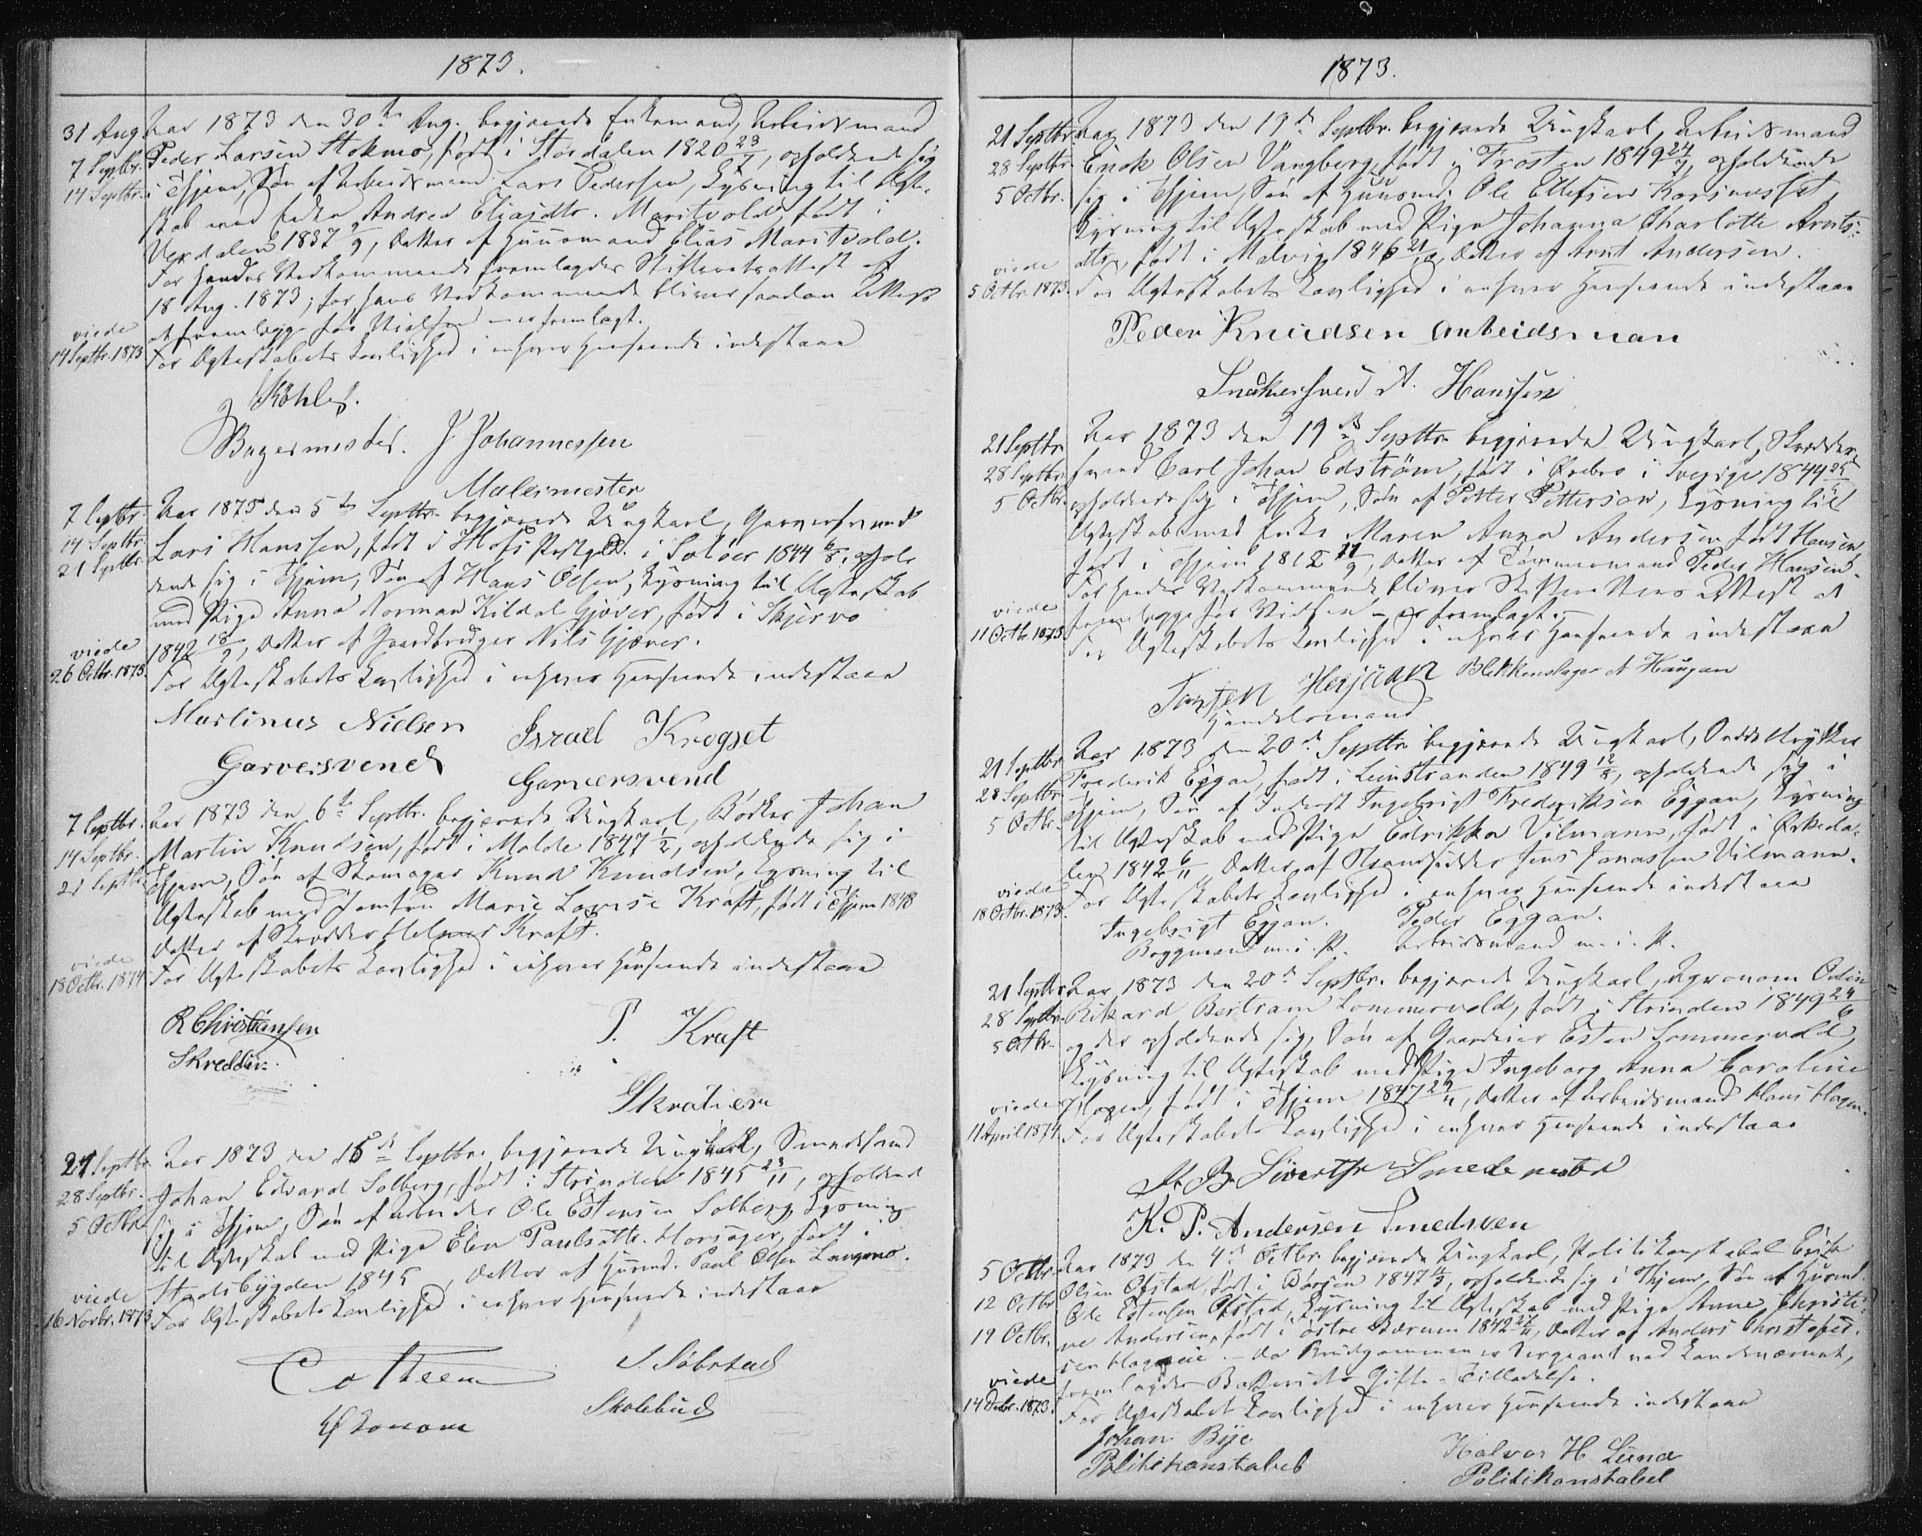 1873.
31 Aug. Aar 1873 den 30te Aug. begjærede Enkemand, Arbeidsmand
7 Septbr. Peder Larsen Stokmo, født i Størdalen 1820 23/7, opholdende sig
14 Septbr. i Thjem, Søn af Arbeidsmand Lars Pedersen, Lysning til Ægte-
skab med Enke Andrea Eliasdtr. Maritvold, født i
Verdalen 1837 2/9, Datter af Huusmand Elias Maritvold.
For hendes Vedkommende fremlagdes Skifteretsattest af
18 Aug. 1873, for hans Vedkommende bliver saadan Attest
at fremlægge før Vielsen er fremlagt.
viede
14 Septbr. 1873 For Ægteskabets Lovlighed i enhver Henseende indestaar
Köhler.
Bagermester. J Johannessen
Malermester
7 Septbr. Aar 1873 den 5te Septbr. begjærede Ungkarl, Garversvend
14 Septbr. Lars Hanssen, født i Hofs Præstgd. i Soløer 1844 6/8, ophol-
21 Septbr. dende sig i Thjem, Søn af Hans Olsen, Lysning til Ægteskab
med Pige Anna Norman Kildal Gjæver, født i Skjervø
1842 18/9, Datter af Gaardbruger Nils Gjæver.
viede
26 Octbr. 1873 For Ægteskabets Lovlighed i enhver Henseende indestaar
Martinus Nielsen Israel Krogset
Garversvend Garversvend
7 Septbr. Aar 1873 den 6te Septbr. begjærede Ungkarl, Bødker Johan
14 Septbr. Martin Knudsen, født i Molde 1847 1/2, opholdende sig i
21 Septbr. Thjem, Søn af Skomager Knud Knudsen, Lysning til
Ægteskab med Jomfru Marie Lovise Kraft, født i Thjem 1848
Datter af Skrædder Helmer Kraft.
viede
18 Octbr. 1874 For Ægteskabets Lovlighed i enhver Henseende indestaar
R Christiansen P. Kraft
Skredder.
Skrædder
21 Septbr. Aar 1873 den 15de Septbr. begjærede Ungkarl, Smedesvend
28 Septbr. Johan Edvard Solberg, født i Strinden 1845 23/11, opholdend
5 Octbr. sig i Thjem, Søn af Arbeider Ole Estensen Solberg, Lysning
til Ægteskab med Pige Elen Paulsdttr. Morsager, født i
Stadsbygden 1845 , Datter af Husmd. Paul Olsen Langmo.
viede
16 Novbr. 1873 For Ægteskabets Lovlighed i enhver Henseende indestaar
S Søbstad
Økonom Skolebud
1873.
21 Septbr. Aar 1873 den 19de Septbr. begjærede Ungkarl, Arbeidsmand
28 Septbr. Enok Olsen Vangberg, født i Frosten 1849 24/7, opholdende
5 Octbr. sig i Thjem, Søn af Huusmd. Ole Ellefsen
Lysning til Ægteskab med Pige Johanna Charlotte Arnts-
dtr, født i Malvig 1846, Datter af Arnt Andersen.
viede
5 Octbr. 1873. For Ægteskabets Lovlighed i enhver Henseende indestaar
Peder Knudsen Arbeidsman
Snedkersvend A. Hanssen
21 Septbr. Aar 1873 den 19de Septbr. begjærede Ungkarl, Skrædder-
28 Septbr. svend Carl Johan Edstrøm, født i Ørebro i Sverige 1844
5 Octbr. opholdende sig i Thjem, Søn af Petter Petterson, Lysning til
Ægteskab med Enke Maren Anna Andersen født Hansen,
født i Thjem 1812 11/9, Datter af Tømmermand Peder Hansen.
For hendes Vedkommende bliver Skifterettens Attest at
viede fremlægge før Vielsen - er fremlagt.-
11 Octbr. 1873 For Ægteskabets Lovlighed i enhver Henseende indestaar
Torsten Herjuan Blikkenslager A Haugan
Handelsmand
21 Septbr. Aar 1873 den 20de Septbr. begjærede Ungkarl,
28 Septbr. Frederik Eggan, født i Leinstranden 1849 12/8, opholdende sig i
5 Octbr. Thjem, Søn af Inderst Ingebrigt Frederiksen Eggan, Lysning
til Ægteskab med Pige Edrikka Vilmann, født i Orkeda-
len 1842 6/11, Datter af Strandsidder Jens Jonassen Vilmann.
viede
18 Octbr. 1873. For Ægteskabets Lovlighed i enhver Henseende indestaar
Ingebrigt Eggan. Peder Eggan.
Byggmand m. i. P. Arbeidsmand m. i. P.
21 Septbr. Aar 1873 den 20de Septbr. begjærede Ungkarl, Agronom Odin
28 Septbr. Rikard Bertram Sommervold, født i Strinden 1849 24/6
5 Octbr. og der opholdende sig, Søn af Gaardeier Esten Sommervold,
Lysning til Ægteskab med Pige Ingeborg Anna Caroline
viede Hagen, født i Thjem 1847 24/11, Datter af Arbeidsmand Hans Hagen.
11 April 1874 For Ægteskabets Lovlighed i enhver Henseende indestaar
Smedemester
K. P. Andersen Smedsven
5 Octbr. Aar 1873 den 4de Octbr. begjærede Ungkarl, Politikonstabel Erik
12 Octbr. Olsen Ofstad, født i Børsen 1847, opholdende sig i Thjem, Søn af Husmd.
Ole Estensen Ofstad, Lysning til Ægteskab med Pige Anne Christi-
19 Octbr. ne Andersen, født i østre Bærum 1842 27/11, Datter af Anders Christofer-
sen. - Da Brudgommen er Sergeant ved Landeværnet,
viede fremlagdes Gifte-Tilladelse.
14 Decbr. 1873. For Ægteskabets Lovlighed i enhver Henseende indestaar
Johan Bye Halvor H Lund
Politikonstabel Politikonstabel